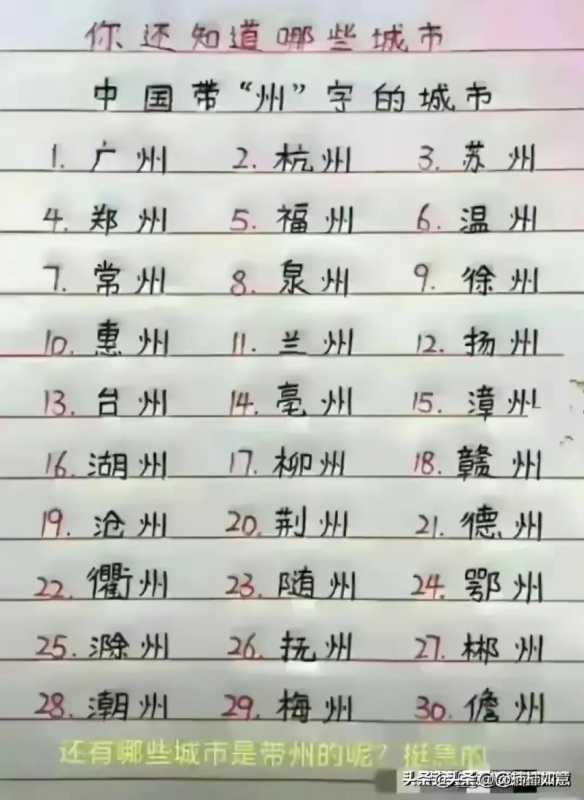 你还知道哪些城市
中国带“州”字的城市
1. 广州 2. 杭州 3. 苏州
4. 郑州 5. 福州 6. 温州
7. 常州 8. 泉州 9. 徐州
10. 惠州 11. 兰州 12. 扬州
13. 台州 14. 亳州 15. 漳州
16. 湖州 17. 柳州 18. 赣州
19. 沧州 20. 荆州 21. 德州
22. 衢州 23. 随州 24. 鄂州
25. 滁州 26. 抚州 27. 郴州
28. 潮州 29. 梅州 30. 儋州
还有哪些城市是带州的呢？挺急的
头条@